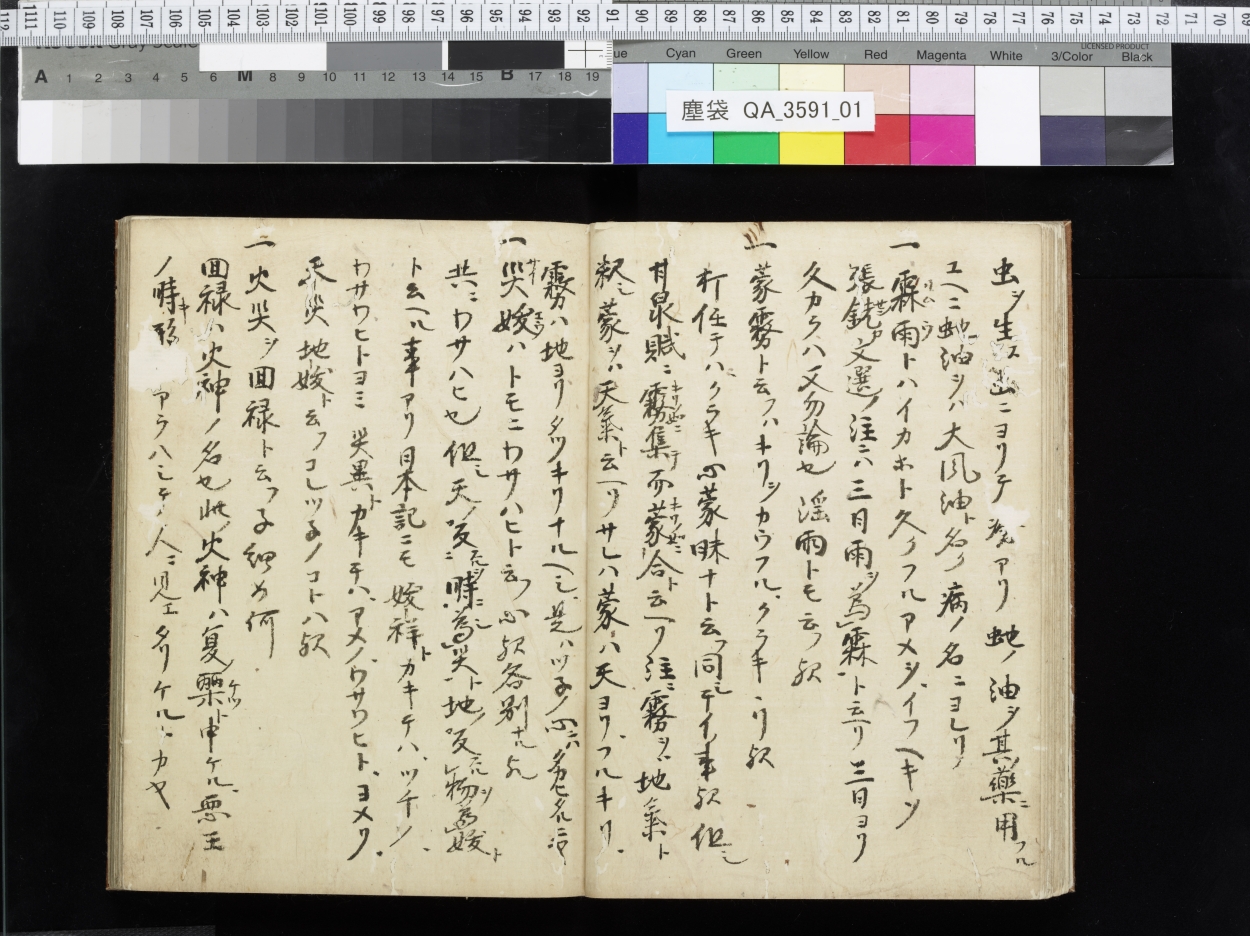 塵袋 QA_3591_01
Cyan Green Yellow Red Magenta White 3/Color Black
LICENSED PRODUCT
A 1 2 3 4 5 6 M 8 9 10 11 12 13 14 15 B 17 18 19
虫ヲ生ス ニヨリテ アリ 蚰ノ油ヲ其藥ニ用フル
ユヘニ蚰油ヲハ大風油ト名ク病ノ名ニヨレリ
一霖雨トハイカホト久クフルアメヲイフヘキソ
張銑カ文選ノ注ニハ三日雨ヲ為霖ト云ヘリ三日ヨリ
久カラハ又勿論也淫雨トモ云フ歟
一蒙霧ト云フハキリヲカウフルクラキキリ歟
打任テハクラキ心蒙昧ナト云フ同シテイノ事歟但シ
甘泉賦ニ霧集而蒙合ト云ヘリ注ニ霧ヲハ地氣ト
釈シ蒙ヲハ天氣ト云ヘリサレハ蒙ハ天ヨリフルキリ
霧ハ地ヨリタツキリナルヘシ是ハツ子ノ心ニハ
一災妖ハトモニワサハヒト云フ心歟各別ナル歟
共ニワサハヒ也但シ天ノ反時ニ為災ト地ノ反物ヲ為妖ト
ト云ヘル事アリ日本記ニモ妖祥トカキテハツチノ
ワサワヒトヨミ災異トカキテハアメノワサワヒトヨメリ
天災地妖ト云フコレツ子ノコトハ歟
一火災ヲ回禄ト云フ子細如何
回禄ハ火神ノ名也此ノ火神ハ夏ノ桀ト申ケル悪王
ノ時 アラハシテ人ニ見エタリケルトカヤ